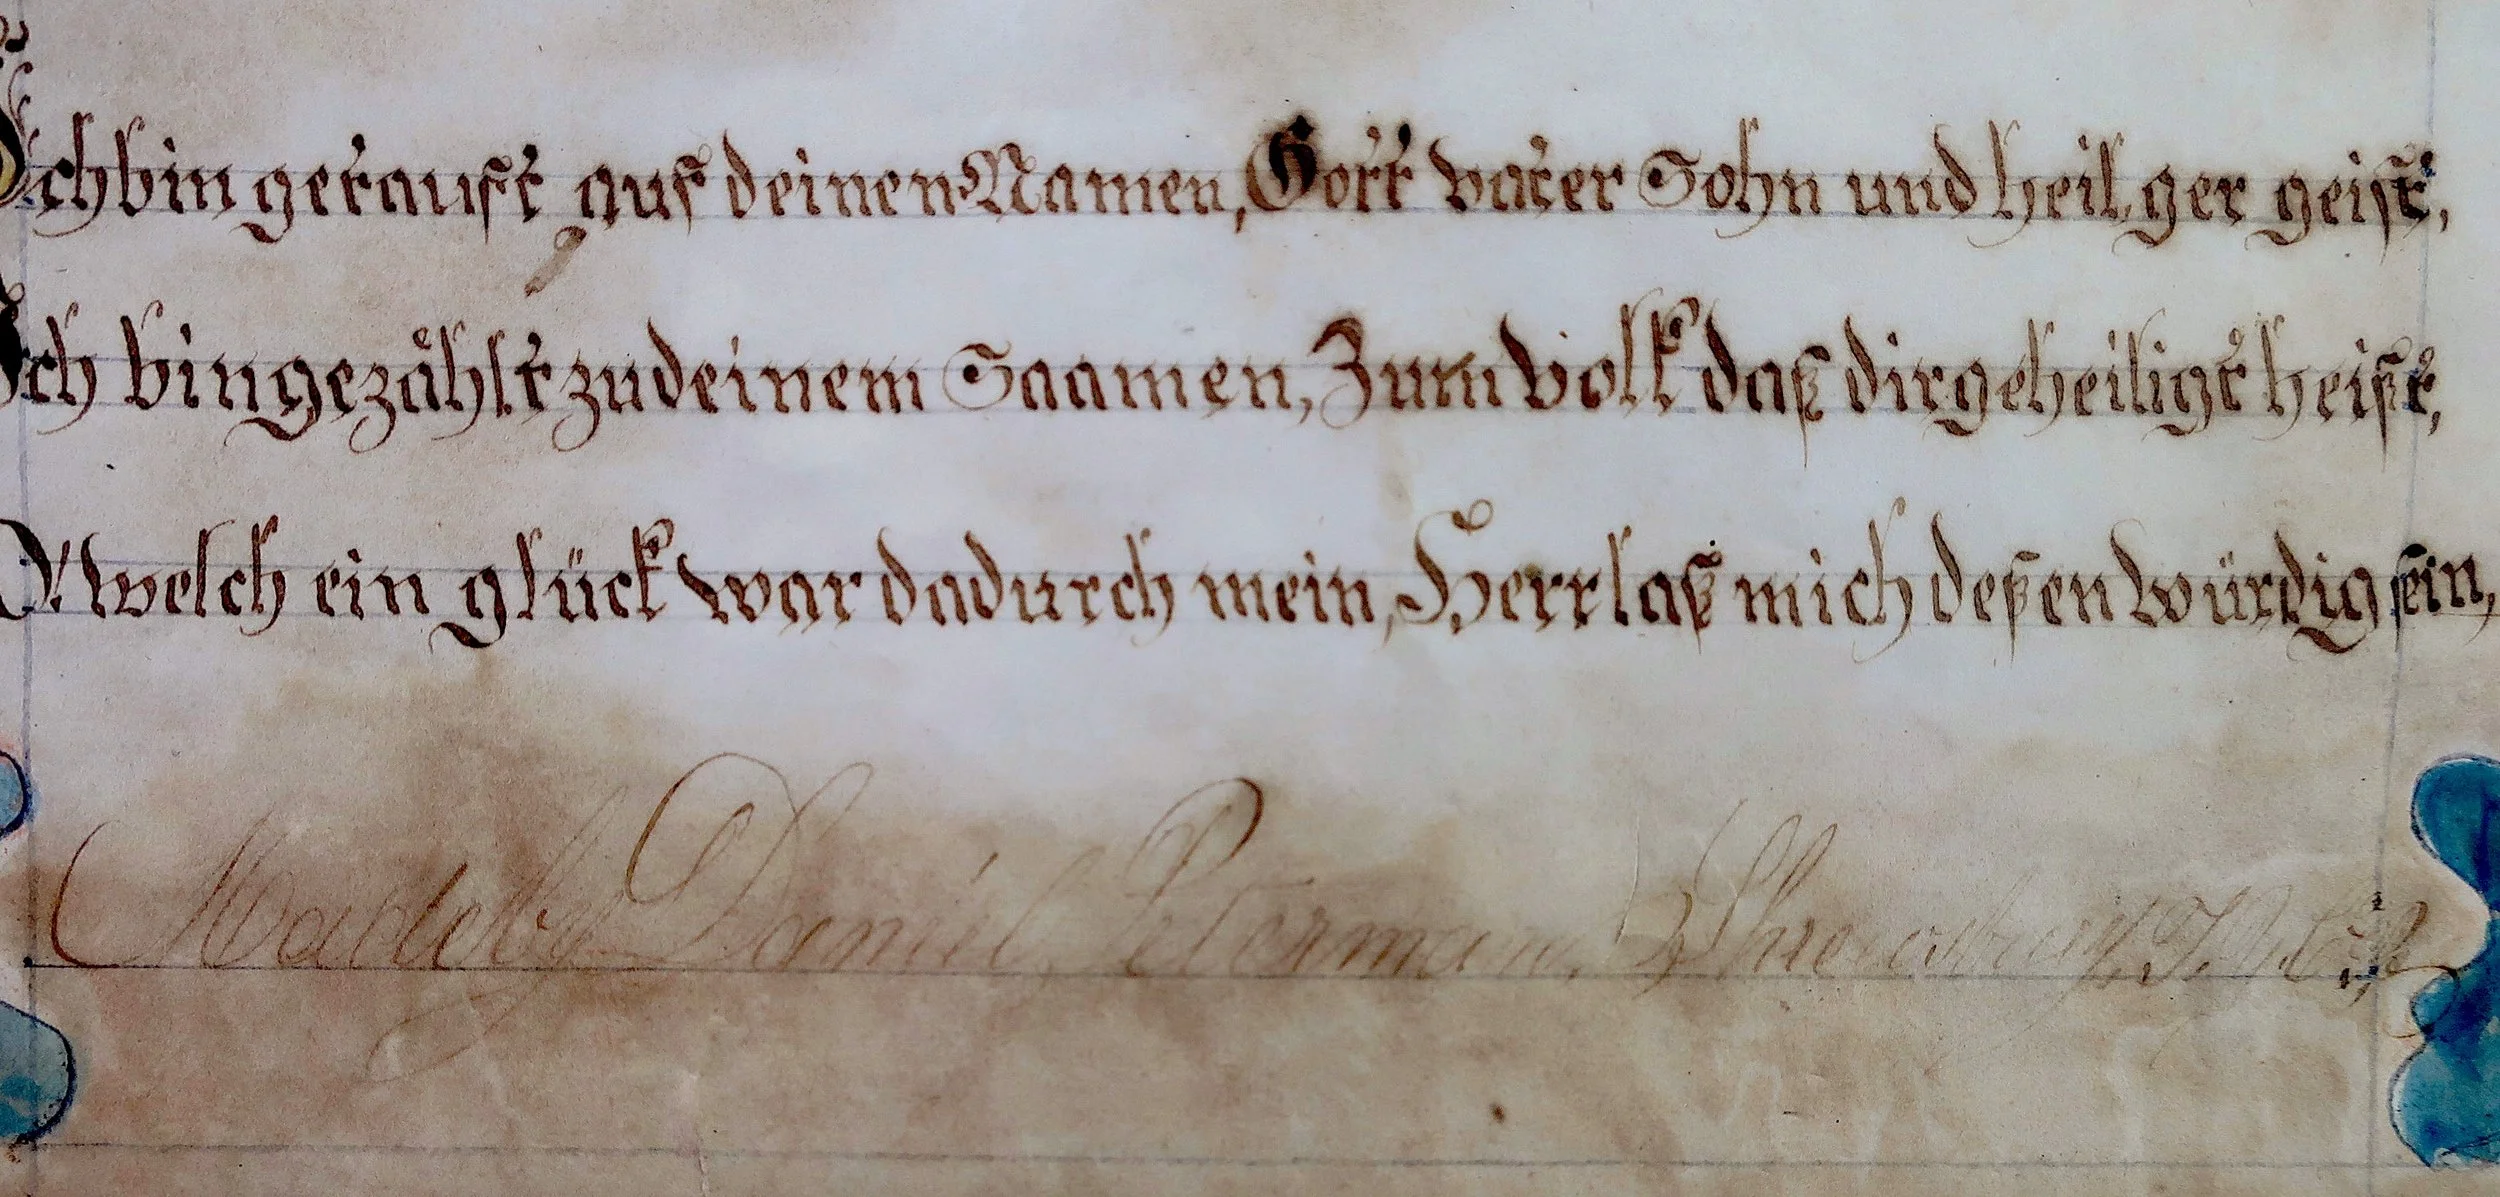 Ich bin getauft auf deinen Namen, Gott vater Sohn und heilger geist,
Ich bin gezåhlt zu deinem Saamen, Zum volk daß dir geheiligt heißt,
O! welch ein glück war dadurch mein, Herr laß mich deßen würdig sein,
Made by Daniel Peterman, Shrewsbury,